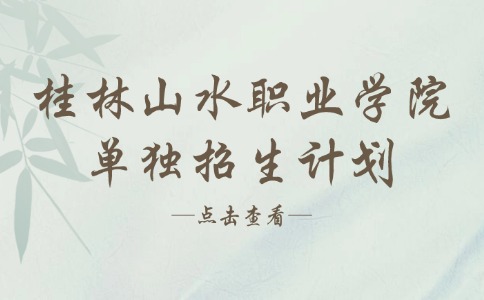 桂林山水职业学院
单独招生计划
—点击查看—